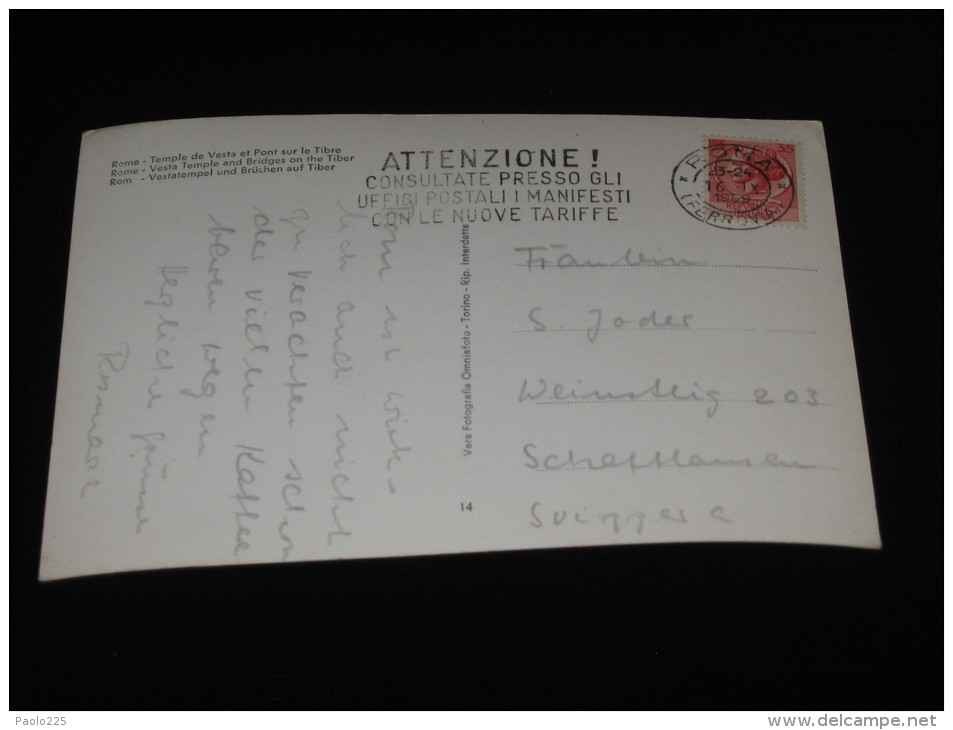 Rome - Temple de Vesta et Pont sur le Tibre
Rome - Vesta Temple and Bridges on the Tiber
Rom - Vestatempel und Brüchen auf Tiber
ATTENZIONE !
CONSULTATE PRESSO GLI
UFFICI POSTALI I MANIFESTI
CON LE NUOVE TARIFFE
35
ROMA
23-24
16 IX
(FERROVIA)
Rom ist wirk-
lich und nicht
zu verachten schon
der vielen Kaffee
baren wegen
Herzliche Grüsse
Rosmarie
Vera Fotografia Omniafoto - Torino - Rip. Interdetta
14
Fräulein
S. Joder
Weinsteig 203
Schaffhausen
Svizzera
Paolo225
www.delcampe.net